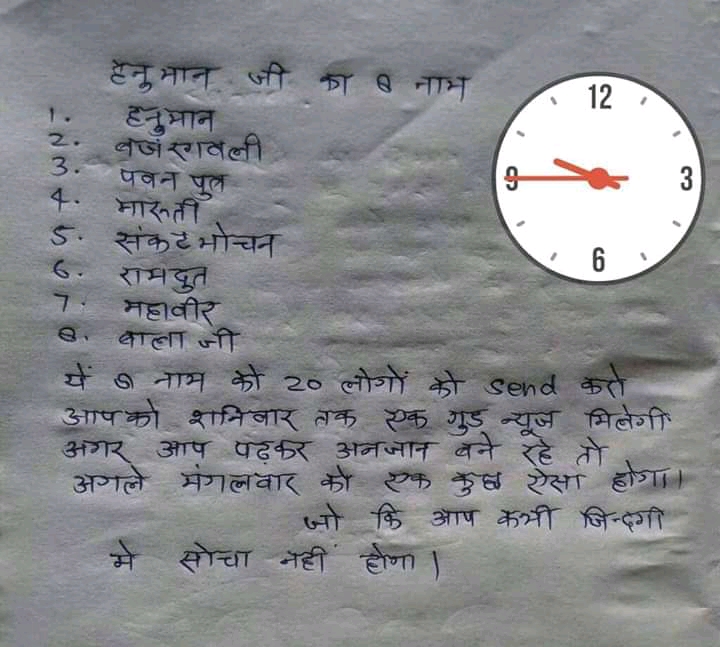 हनुमान जी का 8 नाम
1. हनुमान
2. बजंरगबली
3. पवन पुत्र
4. मारुती
5. संकट मोचन
6. रामदुत
7. महावीर
8. बाला जी
ये 8 नाम को 20 लोगों को send करो
आपको शनिवार तक एक गुड न्यूज मिलेगी
अगर आप पढ़कर अनजान बने रहे तो
अगले मंगलवार को एक कुछ ऐसा होगा।
जो कि आप कभी जिन्दगी
मे सोचा नहीं होगा।
12
3
6
9